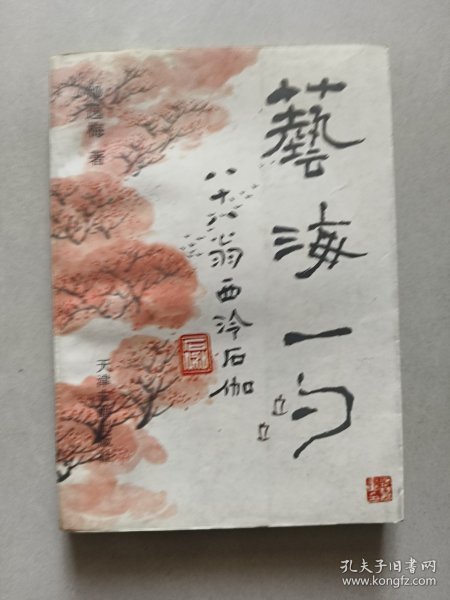 藝海一勺
八十八翁西泠石伽
著
天津
孔夫子旧书网
www.kongfz.com